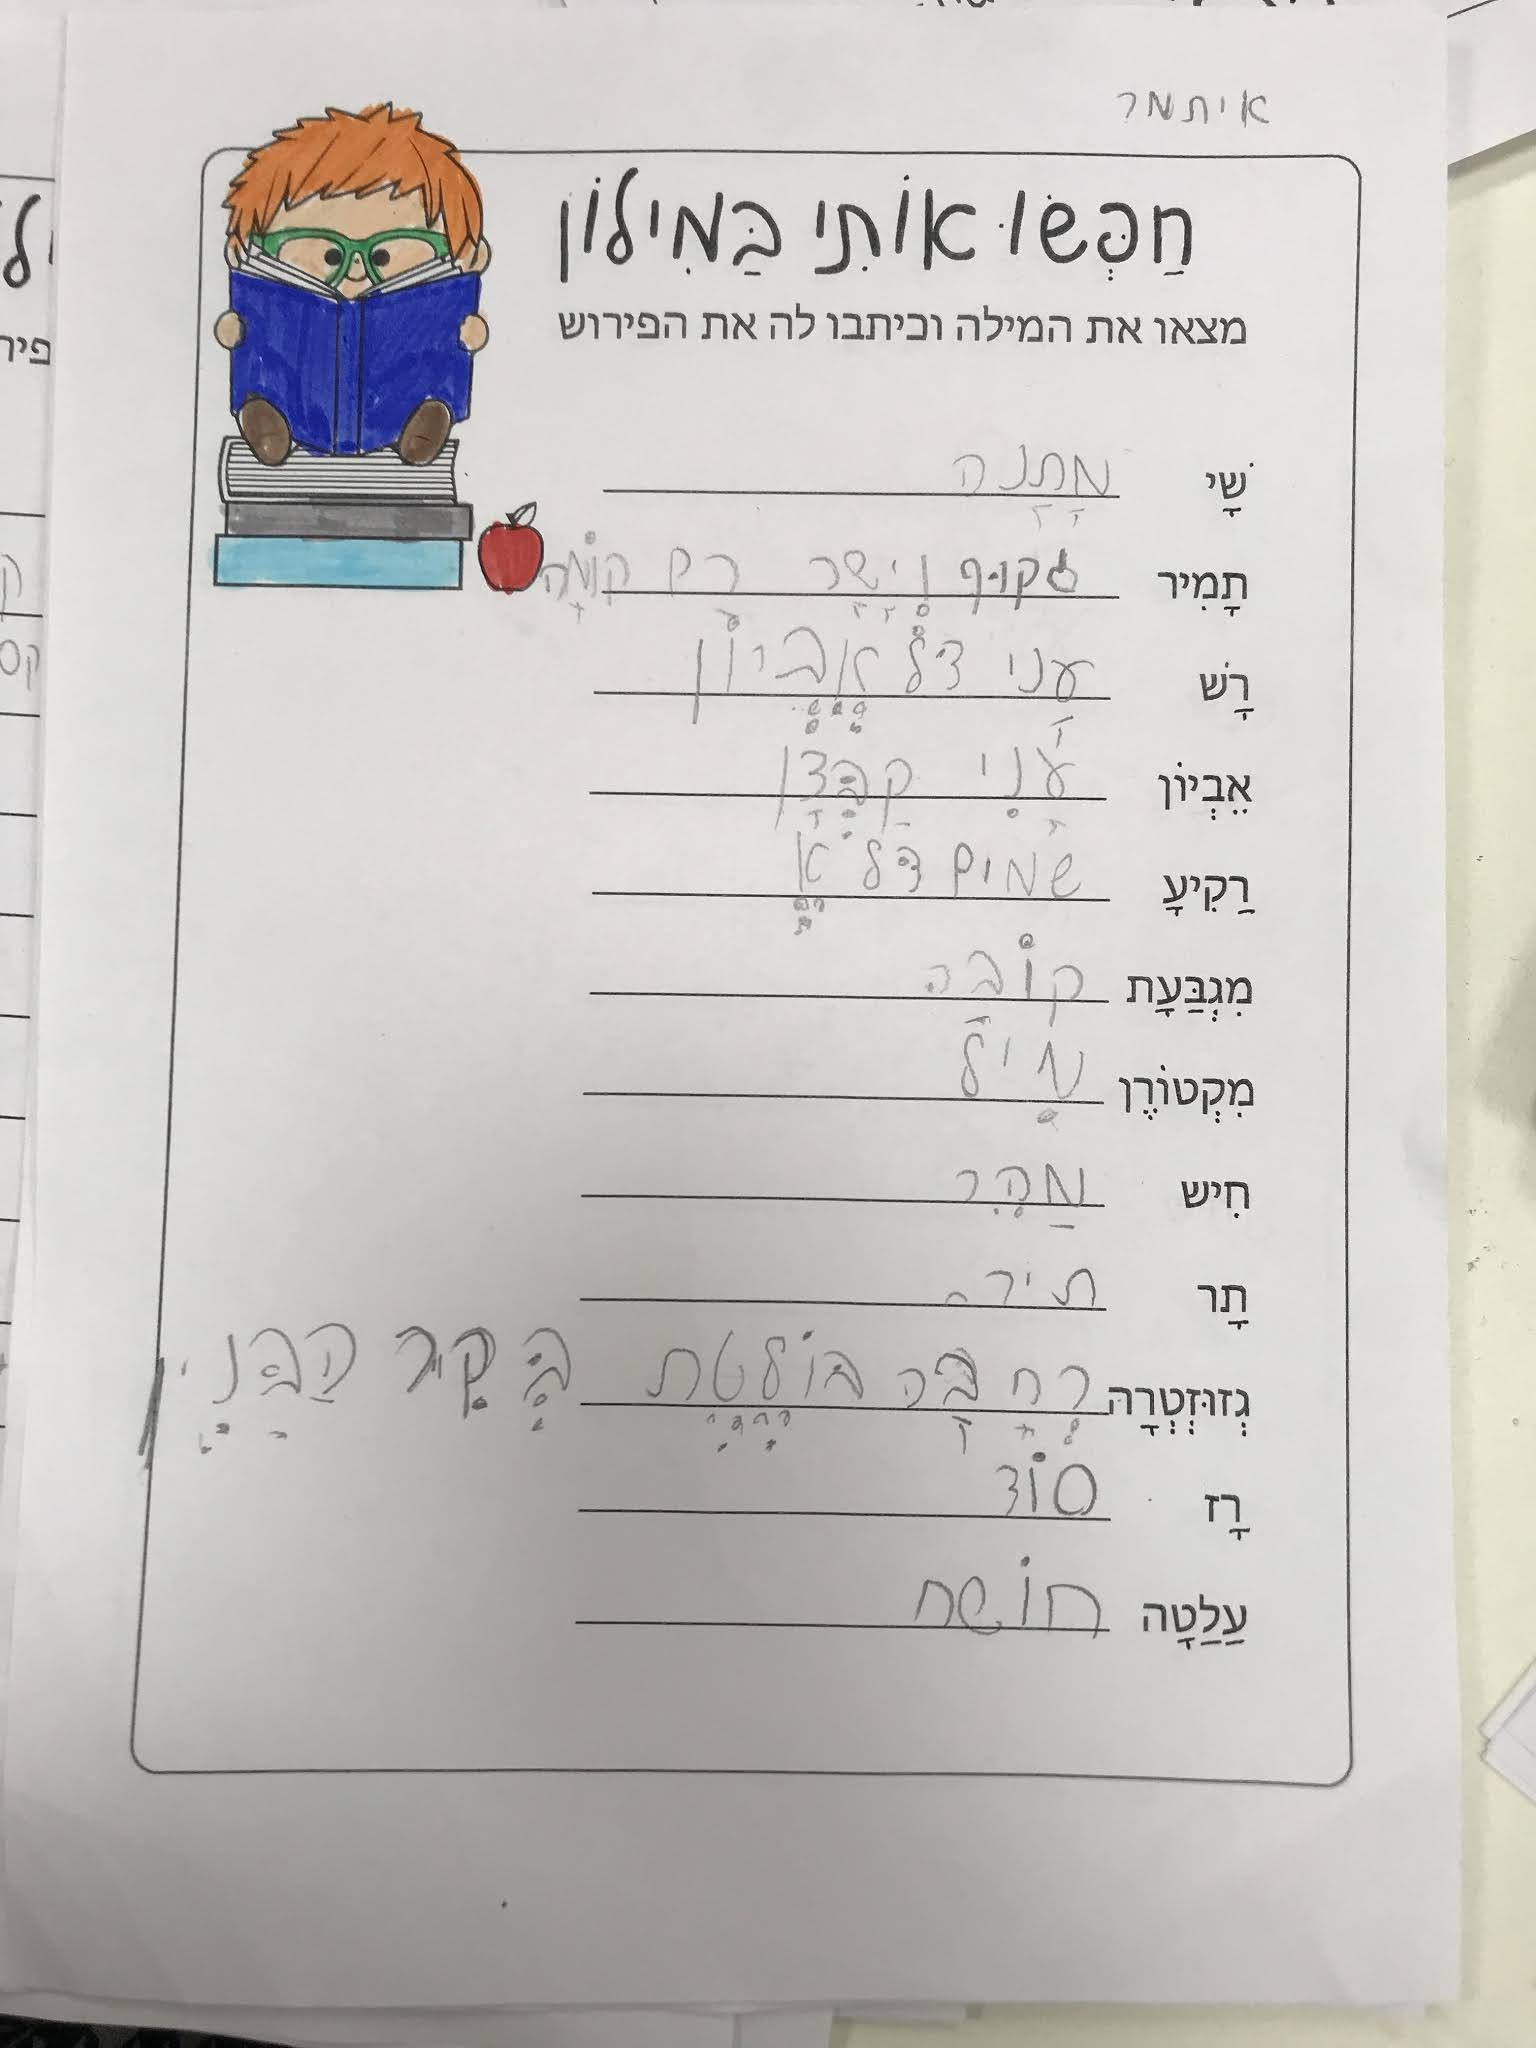 איתמר
חַפְּשׂוּ אוֹתִי בַּמִילוֹן
מצאו את המילה וכיתבו לה את הפירוש
שַׁי מָתָנה
תָמִיר זקוּף וְיָשָר רם קוֹמָה
רָש עָני דל אֶבְיוֹן
אֵבְיוֹן עָנִי קַבְּצָן
רַקִיעָ שמים
מִגְבַּעָת קוֹבה
מִקְטוֹרֶן מְיל
חִיש מַהֵר
תָר תיר
גְזוּזְטְרָה רְחָבָה בּוֹלֶטֶת בְּקִיר הַבִּנְי
רָז סוֹד
עַלַטָה חוֹשח